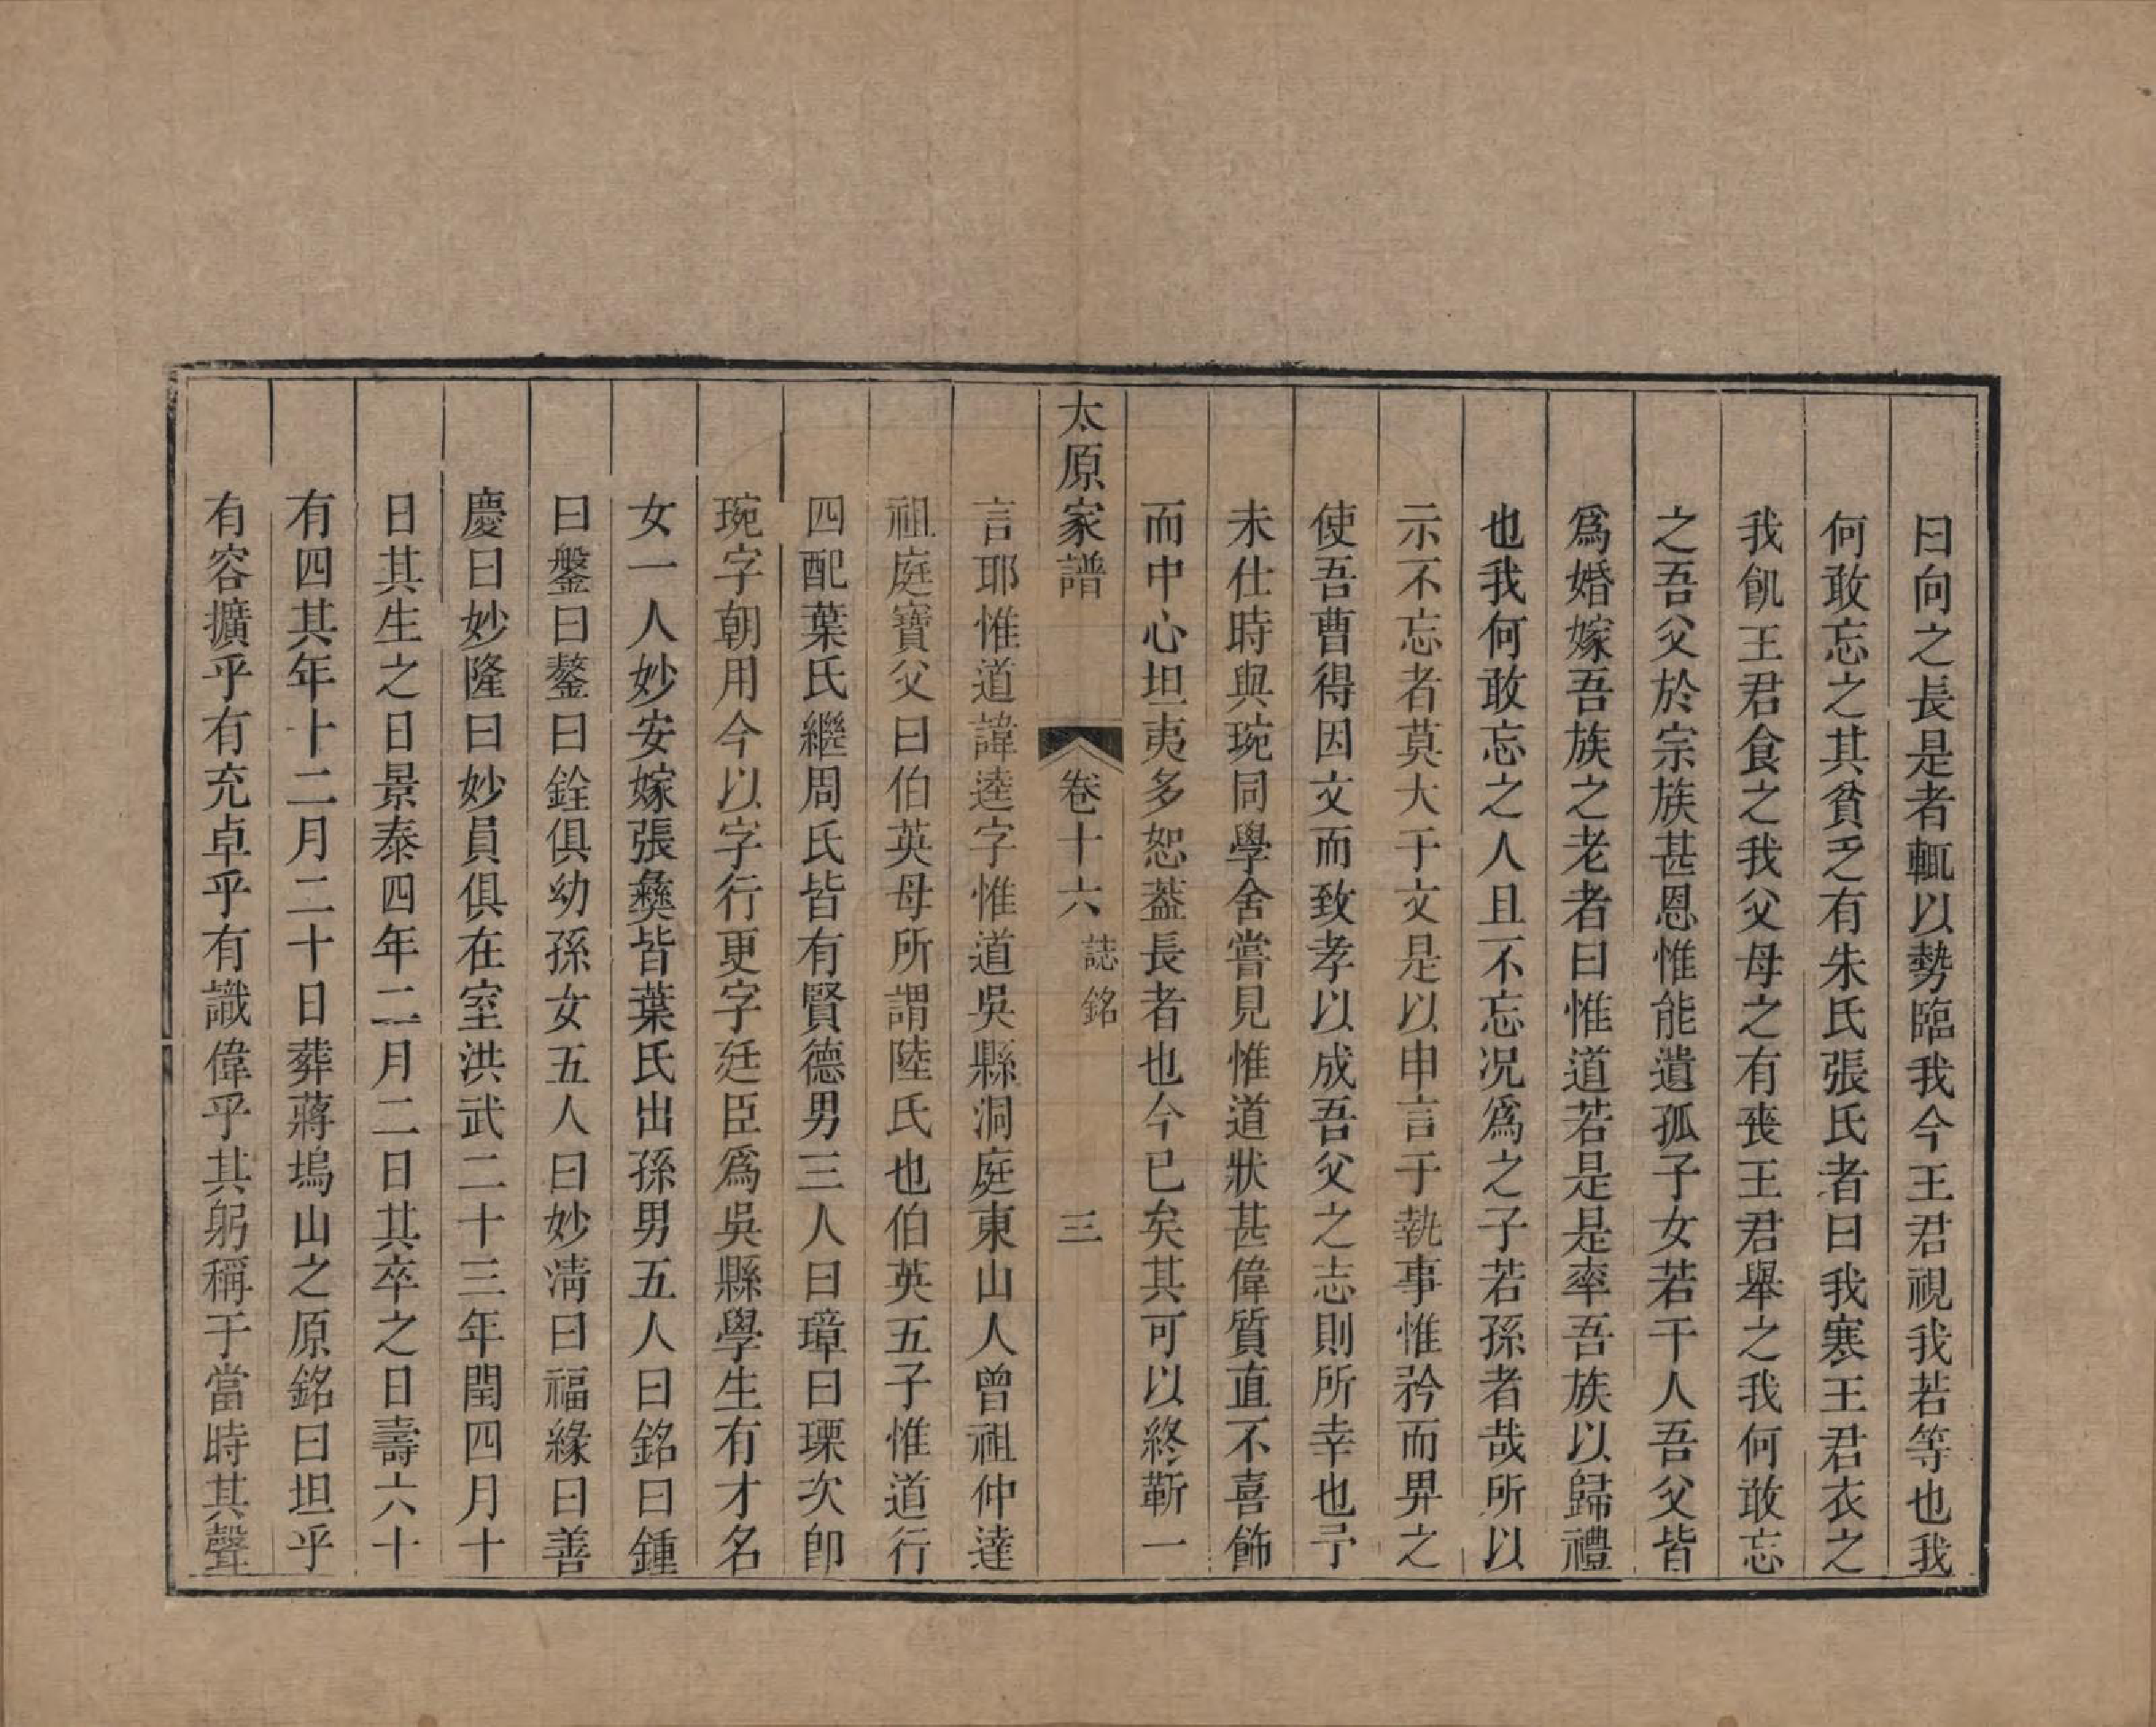 曰向之長是者輒以勢臨我今王君視我若等也我
何敢忘之其貧乏有朱氏張氏者曰我寒王君衣之
我飢王君食之我父母之有喪王君舉之我何敢忘
之吾父於宗族甚恩惟能遺孤子女若干人吾父皆
爲婚嫁吾族之老者曰惟道若是是率吾族以歸禮
也我何敢忘之人且不忘况爲之子若孫者哉所以
示不忘者莫大于文是以申言于執事惟矜而畀之
使吾曹得因文而致孝以成吾父之志則所幸也予
未仕時與琬同學舍嘗見惟道狀甚偉質直不喜飾
而中心坦夷多恕葢長者也今已矣其可以終靳一
太原家譜 卷十六 誌銘 三
言耶惟道諱逵字惟道吳縣洞庭東山人曾祖仲達
祖庭寶父曰伯英母所謂陸氏也伯英五子惟道行
四配葉氏繼周氏皆有賢德男三人曰璋曰瑮次卽
琬字朝用今以字行更字廷臣爲吳縣學生有才名
女一人妙安嫁張彝皆葉氏出孫男五人曰銘曰鍾
曰鎜曰鏊曰銓俱幼孫女五人曰妙淸曰福緣曰善
慶曰妙隆曰妙員俱在室洪武二十三年閏四月十
日其生之日景泰四年二月二日其卒之日壽六十
有四其年十二月二十日葬蔣塢山之原銘曰坦乎
有容擴乎有充卓乎有識偉乎其躬稱于當時其聲